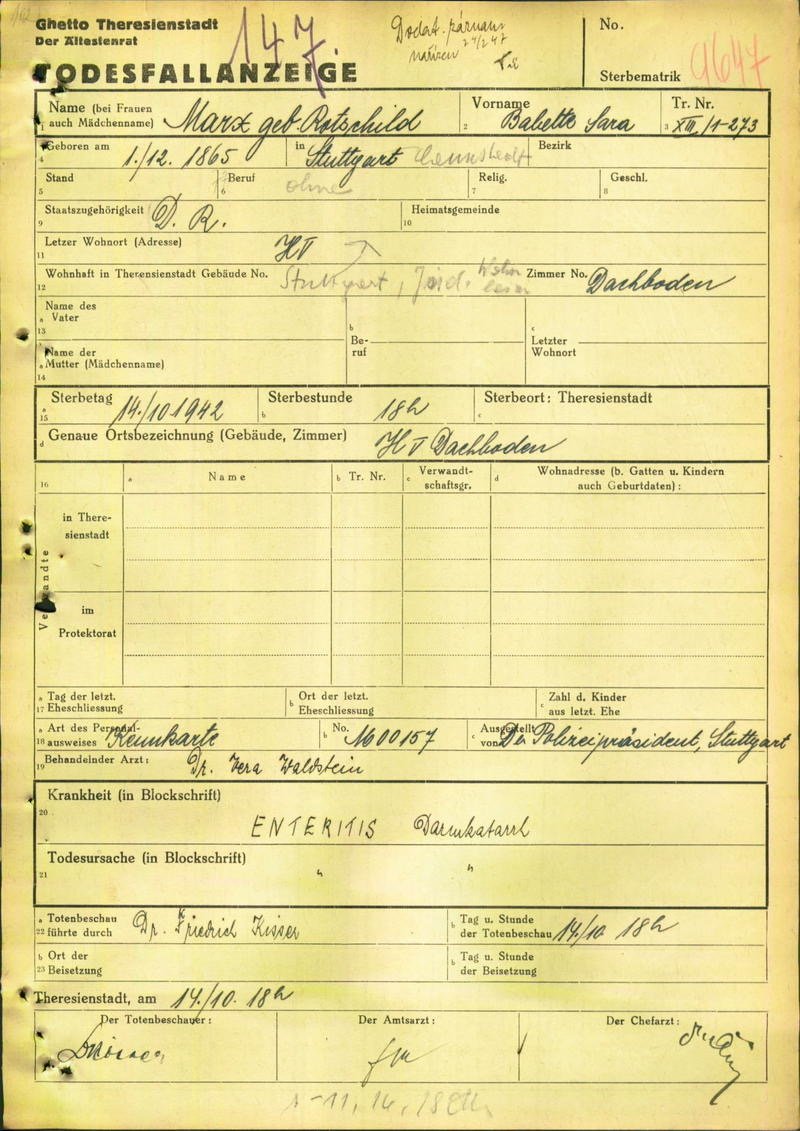 Ghetto Theresienstadt
Der Ältestenrat
TODESFALLANZEIGE
147
Dodat.
24/247
No.
Sterbematrik 9647
Name (bei Frauen auch Mädchenname) Marx geb. Rotschild
1
Vorname Babette Sara
2
Tr. Nr.
3 XIII/1-273
Geboren am 1./12. 1865
4
in Stuttgart
Bezirk
Stand
5
Beruf ohne
6
Relig.
7
Geschl.
8
Staatszugehörigkeit D. R.
9
Heimatsgemeinde
10
Letzer Wohnort (Adresse) HV
11
Wohnhaft in Theresienstadt Gebäude No. Stuttgart, Jüd.
12
Zimmer No. Dachboden
Name des
a Vater
13
b
Be-
ruf
c
Letzter
Wohnort
Name der
a Mutter (Mädchenname)
14
a Sterbetag 14./10 1942
15
Sterbestunde 18h
b
Sterbeort: Theresienstadt
c
d Genaue Ortsbezeichnung (Gebäude, Zimmer) HV Dachboden
16
a Name
b Tr. Nr.
c Verwandt-
schaftsgr.
d Wohnadresse (b. Gatten u. Kindern
auch Geburtdaten):
Verwandte
in There-
sienstadt
im
Protektorat
a Tag der letzt.
17 Eheschliessung
b Ort der letzt.
Eheschliessung
c Zahl d. Kinder
aus letzt. Ehe
a Art des Personal-
18 ausweises Kennkarte
b No. A600157
c Ausgestellt
von Der Polizeipräsident, Stuttgart
19 Behandelnder Arzt: Dr. Vera Waldstein
Krankheit (in Blockschrift)
20
ENTERITIS Darmkatarrh
Todesursache (in Blockschrift)
21 " "
a Totenbeschau
22 führte durch Dr. Friedrich Kisser
b Tag u. Stunde
der Totenbeschau 14/10 18h
b Ort der
23 Beisetzung
b Tag u. Stunde
der Beisetzung
Theresienstadt, am 14./10. 18h
Der Totenbeschauer:
Der Amtsarzt:
Der Chefarzt: